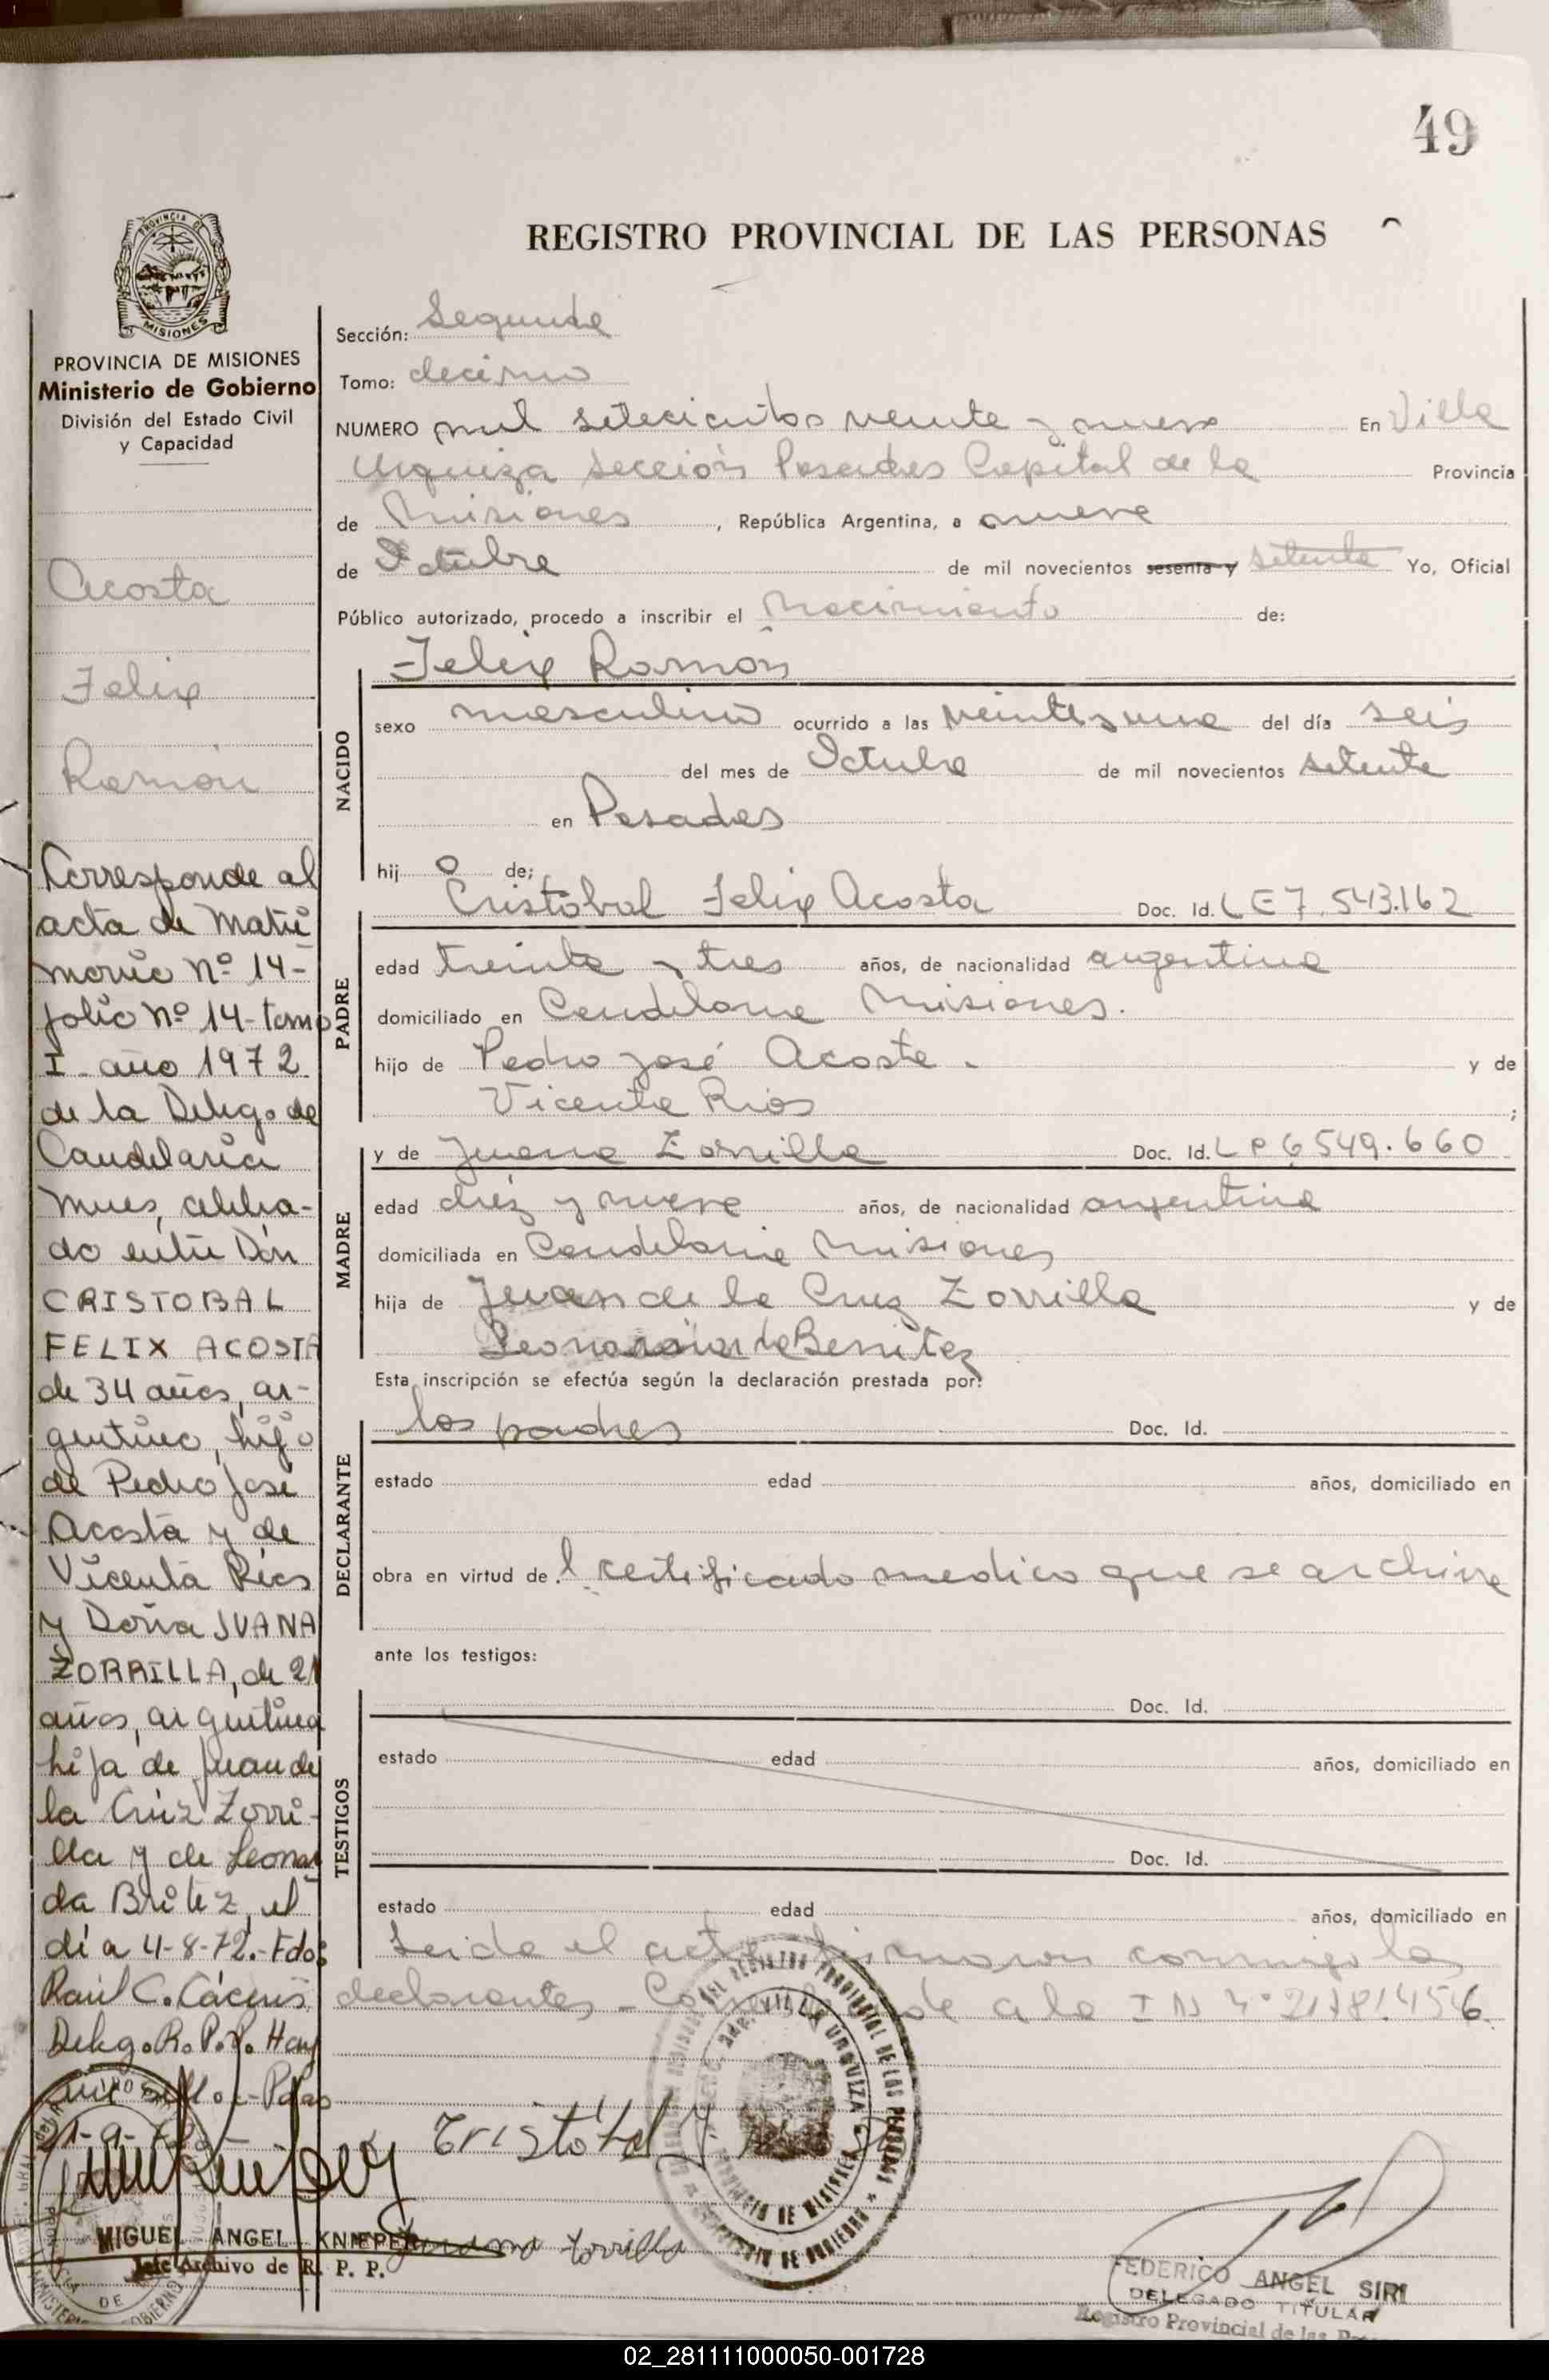 49
REGISTRO PROVINCIAL DE LAS PERSONAS
PROVINCIA DE
MISIONES
PROVINCIA DE MISIONES
Ministerio de Gobierno
División del Estado Civil
y Capacidad
Acosta
Felix
Ramón
Corresponde al
acta de Matri
monio Nº 14-
folio Nº 14-tomo
I- año 1972
de la Deleg. de
Candelaria
Mnes, celebra-
do entre Don
CRISTOBAL
FELIX ACOSTA
de 34 años, ar-
gentino, hijo
de Pedro José
Acosta y de
Vicenta Ríos
y Doña JUANA
ZORRILLA, de 21
años, argentina
hija de Juan de
la Cruz Zorri-
lla y de Leonar
da Britez, el
día 4-8-72.- Fdo:
Raúl C. Cáceres
Deleg. R.P.P. Hay
un sello.- Pdas
MIGUEL ANGEL KNIEPER
Jefe Archivo de R. P. P.
Sección: Segunda
Tomo: decimo
NUMERO mil setecientos veinte y nueve En Villa
Urquiza Sección Posadas Capital de la Provincia
de Misiones, República Argentina, a nueve
de Octubre de mil novecientos sesenta y setenta Yo, Oficial
Público autorizado, procedo a inscribir el Nacimiento de:
Felix Ramon
NACIDO
sexo masculino ocurrido a las veintiuna del día seis
del mes de Octubre de mil novecientos setenta
en Posadas
hijo de;
PADRE
Cristobal Felix Acosta Doc. Id. LE 7.543.162
edad treinta y tres años, de nacionalidad argentina
domiciliado en Candelaria Misiones.
hijo de Pedro José Acosta. y de
Vicenta Rios ;
MADRE
y de Juana Zorrilla Doc. Id. LP 6549.660
edad diez y nueve años, de nacionalidad argentina
domiciliada en Candelaria Misiones
hija de Juan de la Cruz Zorrilla y de
Benitez
Esta inscripción se efectúa según la declaración prestada por:
DECLARANTE
los padres Doc. Id.
estado edad años, domiciliado en
obra en virtud de l certificado medico que se archiva
ante los testigos:
TESTIGOS
Doc. Id.
estado edad años, domiciliado en
Doc. Id.
estado edad años, domiciliado en
Leida el acta firmaron conmigo los
declarantes - a la I N Nº 21781456.
Cristóbal
Juana Zorrilla
VILLA URQUIZA
FEDERICO ANGEL SIRI
DELEGADO TITULAR
Registro Provincial de las
02_281111000050-001728